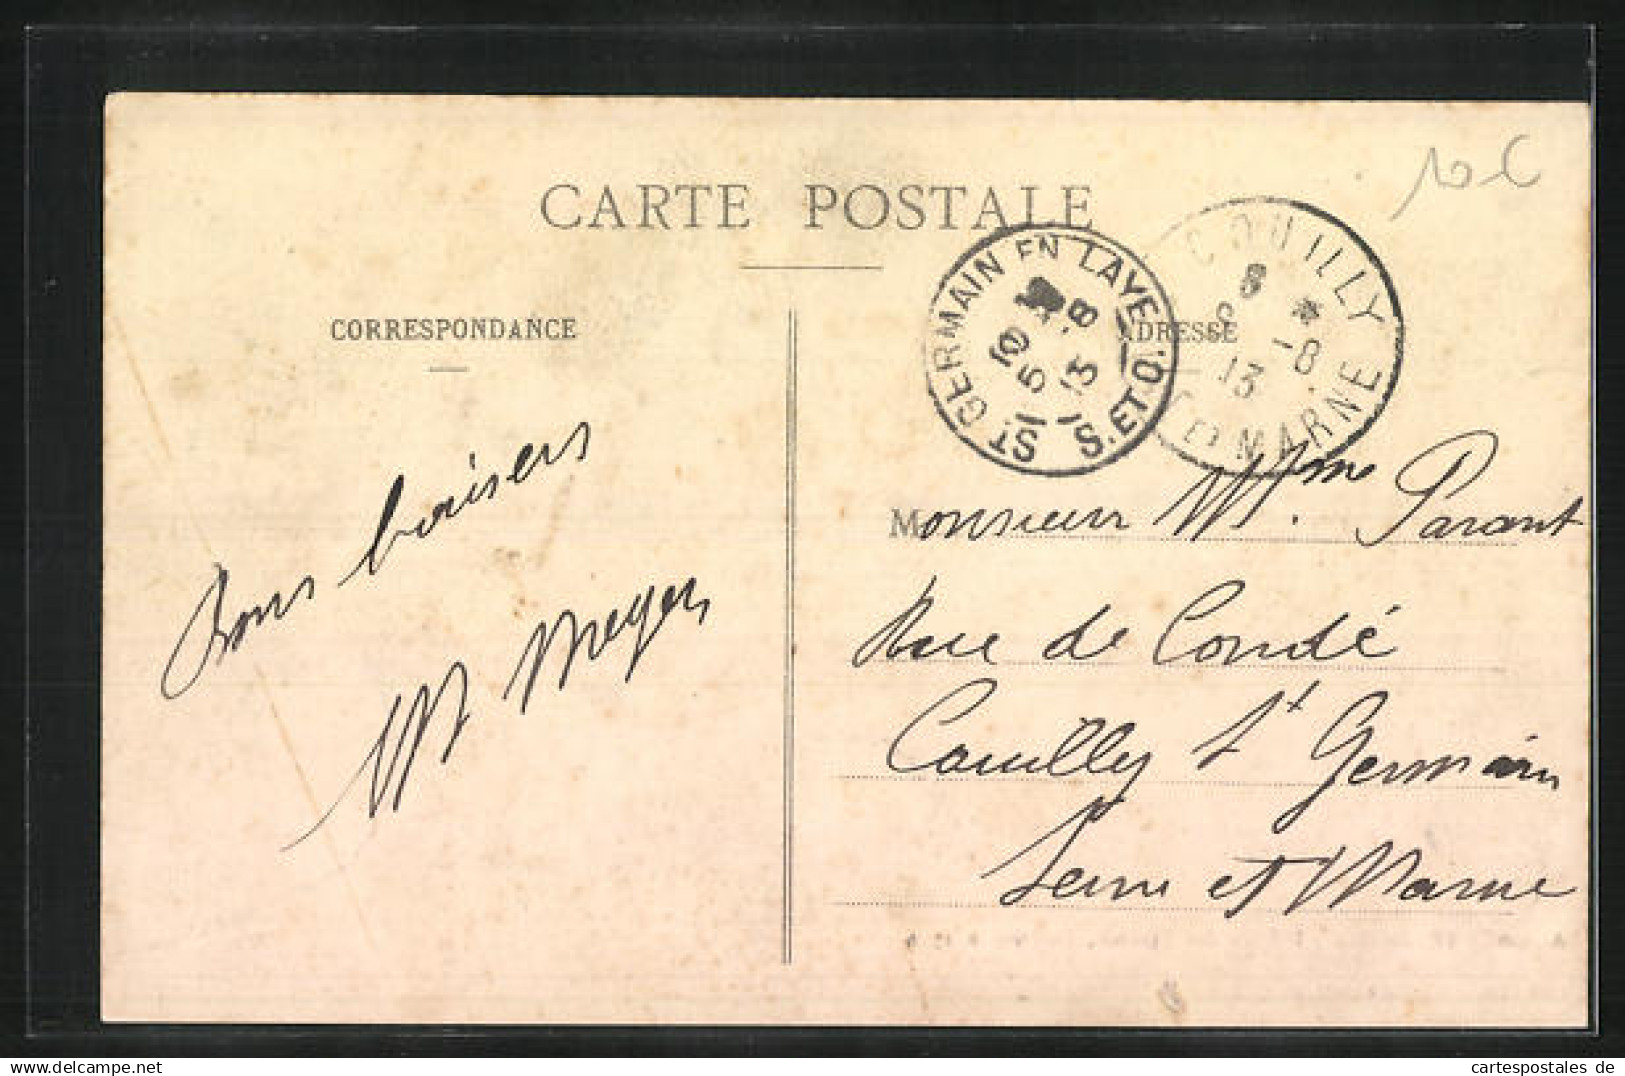 CARTE POSTALE
CORRESPONDANCE
ADRESSE
ST GERMAIN EN LAYE
S. ET O.
5 -8
13
COUILLY
8 *
-8
13
ET MARNE
Bons baisers
Meyer
Monsieur Mme Parant
Rue de Condé
Couilly St Germain
Seine et Marne
cartespostales de